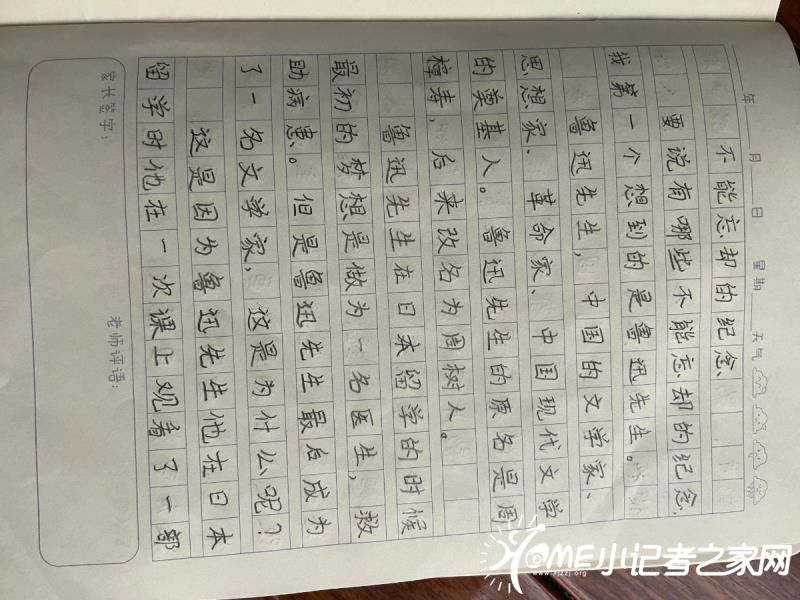 年 月 日 星期 天气
不能忘却的纪念
要说有哪些不能忘却的纪念,
我第一个想到的是鲁迅先生。
鲁迅先生,中国的文学家、
思想家、革命家、中国现代文学
的奠基人。鲁迅先生的原名是周
樟寿,后来改名为周树人。
鲁迅先生在日本留学的时候
最初的梦想是做为一名医生,救
助病患。但是鲁迅先生最后成为
了一名文学家,这是为什么呢?
这是因为鲁迅先生他在日本
留学时他在一次课上观看了一部
家长签字: 老师评语:
HOME小记者之家网